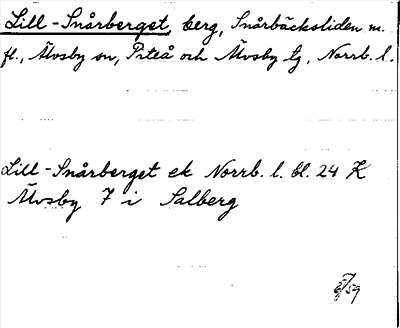 Lill-Snårberget, berg, Snårbäcksliden m.
fl., Älvsby sn, Piteå och Älvsby tg, Norrb. l.
Lill-Snårberget ek Norrb. l. bl. 24 K
Älvsby 7 i Salberg